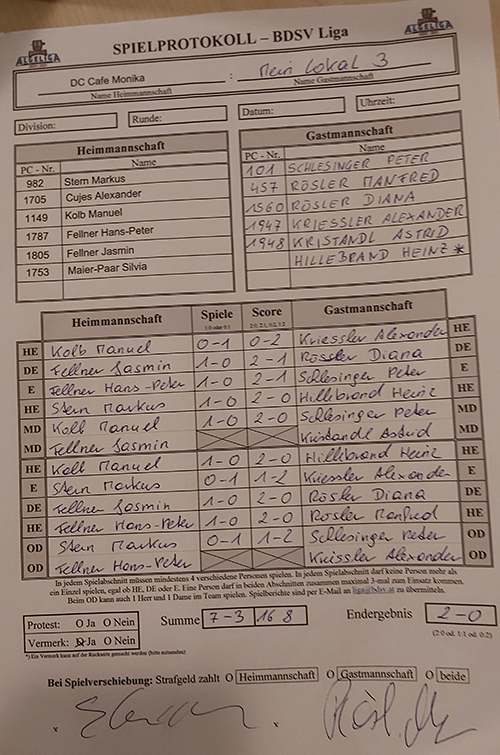 ALGELIGA SPIELPROTOKOLL – BDSV Liga ALGELIGA
DC Cafe Monika : Mein Lokal 3
Name Heimmannschaft Name Gastmannschaft
Division: Runde: Datum: Uhrzeit:
Heimmannschaft
PC - Nr. Name
982 Stern Markus
1705 Cujes Alexander
1149 Kolb Manuel
1787 Fellner Hans-Peter
1805 Fellner Jasmin
1753 Maier-Paar Silvia
Gastmannschaft
PC - Nr. Name
101 SCHLESINGER PETER
457 RÖSLER MANFRED
1560 RÖSLER DIANA
1947 KRIESSLER ALEXANDER
1948 KRISTANDL ASTRID
HILLEBRAND HEINZ *
Heimmannschaft Spiele Score Gastmannschaft
1:0 oder 0:1 2:0, 2:1, 0:2, 1:2
HE Kolb Manuel 0-1 0-2 Kriessler Alexander HE
DE Fellner Jasmin 1-0 2-1 Rössler Diana DE
E Fellner Hans-Peter 1-0 2-1 Schlesinger Peter E
HE Stern Markus 1-0 2-0 Hillibrand Heinz HE
MD Kolb Manuel 1-0 2-0 Schlesinger Peter MD
MD Fellner Jasmin Kristandl Astrid MD
HE Kolb Manuel 1-0 2-0 Hillibrand Heinz HE
E Stern Markus 0-1 1-2 Kriessler Alexander E
DE Fellner Jasmin 1-0 2-0 Rösler Diana DE
HE Fellner Hans-Peter 1-0 2-0 Rösler Manfred HE
OD Stern Markus 0-1 1-2 Schlesinger Peter OD
OD Fellner Hans-Peter Kriessler Alexander OD
In jedem Spielabschnitt müssen mindestens 4 verschiedene Personen spielen. In jedem Spielabschnitt darf keine Person mehr als
ein Einzel spielen, egal ob HE, DE oder E. Eine Person darf in beiden Abschnitten zusammen maximal 3-mal zum Einsatz kommen.
Beim OD kann auch 1 Herr und 1 Dame im Team spielen. Spielberichte sind per E-Mail an liga@bdsv.at zu übermitteln.
Protest: O Ja O Nein Summe 7-3 16 8 Endergebnis 2-0
Vermerk: O Ja O Nein (2:0 od. 1:1 od. 0:2)
*) Ein Vermerk kann auf der Rückseite gemacht werden (bitte mitsenden)
Bei Spielverschiebung: Strafgeld zahlt O Heimmannschaft O Gastmannschaft O beide
x x